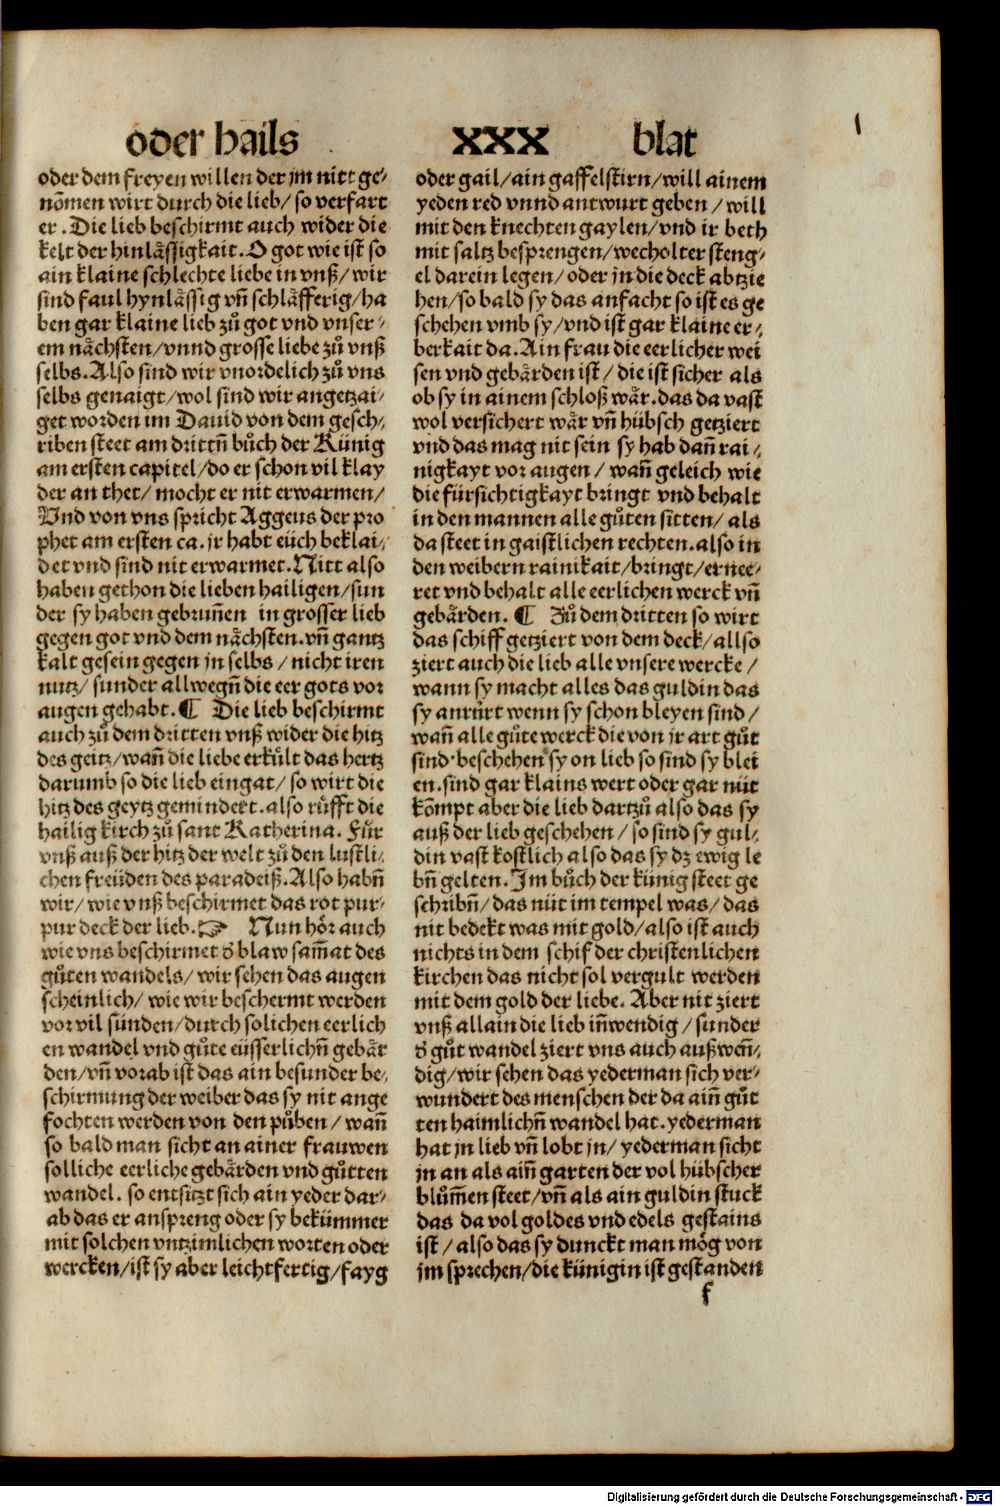 oder hails XXX blat
oder dem freyen willen der jm nitt ge-
nōmen wirt durch die lieb/ so verfart
er. Die lieb beschirmt auch wider die
kelt der hinlässigkait. O got wie ist so
ain klaine schlechte liebe in vnß/ wir
sind faul hynlässig vn̄ schläfferig/ ha
ben gar klaine lieb zů got vnd vnser-
em nächsten/ vnnd grosse liebe zů vnß
selbs. Also sind wir vnordelich zů vns
selbs genaigt/ wol sind wir angetzai-
get worden im Dauid von dem gesch-
riben steet am drittn̄ bůch der Künig
am ersten capitel/ do er schon vil klay
der an thet/ mocht er nit erwarmen/
Vnd von vns spricht Aggeus der pro
phet am ersten ca. jr habt eüch beklai-
det vnd sind nit erwarmet. Nitt also
haben gethon die lieben hailigen/ sun
der sy haben gebrun̄en in grosser lieb
gegen got vnd dem nächsten. vn̄ gantz
kalt gesein gegen jn selbs/ nicht iren
nutz/ sunder allwegn̄ die eer gots vor
augen gehabt. ¶ Die lieb beschirmt
auch zů dem dritten vnß wider die hitz
des geitz/ wan̄ die liebe erkůlt das hertz
darumb so die lieb eingat/ so wirt die
hitz des geytz gemindert. also růfft die
hailig kirch zů sant Katherina. Für
vnß auß der hitz der welt zů den lustli-
chen freüden des paradeiß. Also habn̄
wir/ wie vnß beschirmet das rot pur-
pur deck der lieb. ☞ Nun hör auch
wie vns beschirmet d̄ blaw sam̄at des
gůten wandels/ wir sehen das augen
scheinlich/ wie wir beschermt werden
vor vil sünden/ durch solichen eerlich
en wandel vnd gůte eüsserlichn̄ gebär
den/ vn̄ vorab ist das ain besunder be-
schirmung der weiber das sy nit ange
fochten werden von den půben/ wan̄
so bald man sicht an ainer frauwen
solliche eerliche gebärden vnd gůtten
wandel. so entsitzt sich ain yeder dar-
ab das er anspreng oder sy bekümmer
mit solchen vntzimlichen worten oder
wercken/ ist sy aber leichtfertig/ fayg
oder gail/ ain gaffelstirn/ will ainem
yeden red vnnd antwurt geben/ will
mit den knechten gaylen/ vnd ir beth
mit saltz besprengen/ wecholter steng-
el darein legen/ oder jn die deck abtzie
hen/ so bald sy das anfacht so ist es ge
schehen vmb sy/ vnd ist gar klaine er-
berkait da. Ain frau die eerlicher wei
sen vnd gebärden ist/ die ist sicher als
ob sy in ainem schloß wär. das da vast
wol versichert wär vn̄ hübsch getziert
vnd das mag nit sein sy hab dan̄ rai-
nigkayt vor augen/ wan̄ geleich wie
die fürsichtigkayt bringt vnd behalt
in den mannen alle gůten sitten/ als
da steet in gaistlichen rechten. also in
den weibern rainikait/ bringt/ ernee-
ret vnd behalt alle eerlichen werck vn̄
gebärden. ¶ Zů dem dritten so wirt
das schiff getziert von dem deck/ allso
ziert auch die lieb alle vnsere wercke/
wann sy macht alles das guldin das
sy anrůrt wenn sy schon bleyen sind/
wan̄ alle gůte werck die von jr art gůt
sind. beschehen sy on lieb so sind sy blei
en. sind gar klains wert oder gar nüt
kömpt aber die lieb dartzů also das sy
auß der lieb geschehen/ so sind sy gul-
din vast kostlich also das sy dz ewig le
bn̄ gelten. Im bůch der künig steet ge
schribn̄/ das nüt im tempel was/ das
nit bedekt was mit gold/ also ist auch
nichts in dem schif der christenlichen
kirchen das nicht sol vergult werden
mit dem gold der liebe. Aber nit ziert
vnß allain die lieb in̄wendig/ sunder
d̄ gůt wandel ziert vns auch außwen̄-
dig/ wir sehen das yederman sich ver-
wundert des menschen der da ain̄ gůt
ten haimlichn̄ wandel hat. yederman
hat jn lieb vn̄ lobt jn/ yederman sicht
jn an als ain̄ garten der vol hübscher
blům̄en steet/ vn̄ als ain guldin stuck
das da vol goldes vnd edels gestains
ist/ also das sy dunckt man mög von
jm sprechen/ die künigin ist gestanden
f
Digitalisierung gefördert durch die Deutsche Forschungsgemeinschaft - DFG